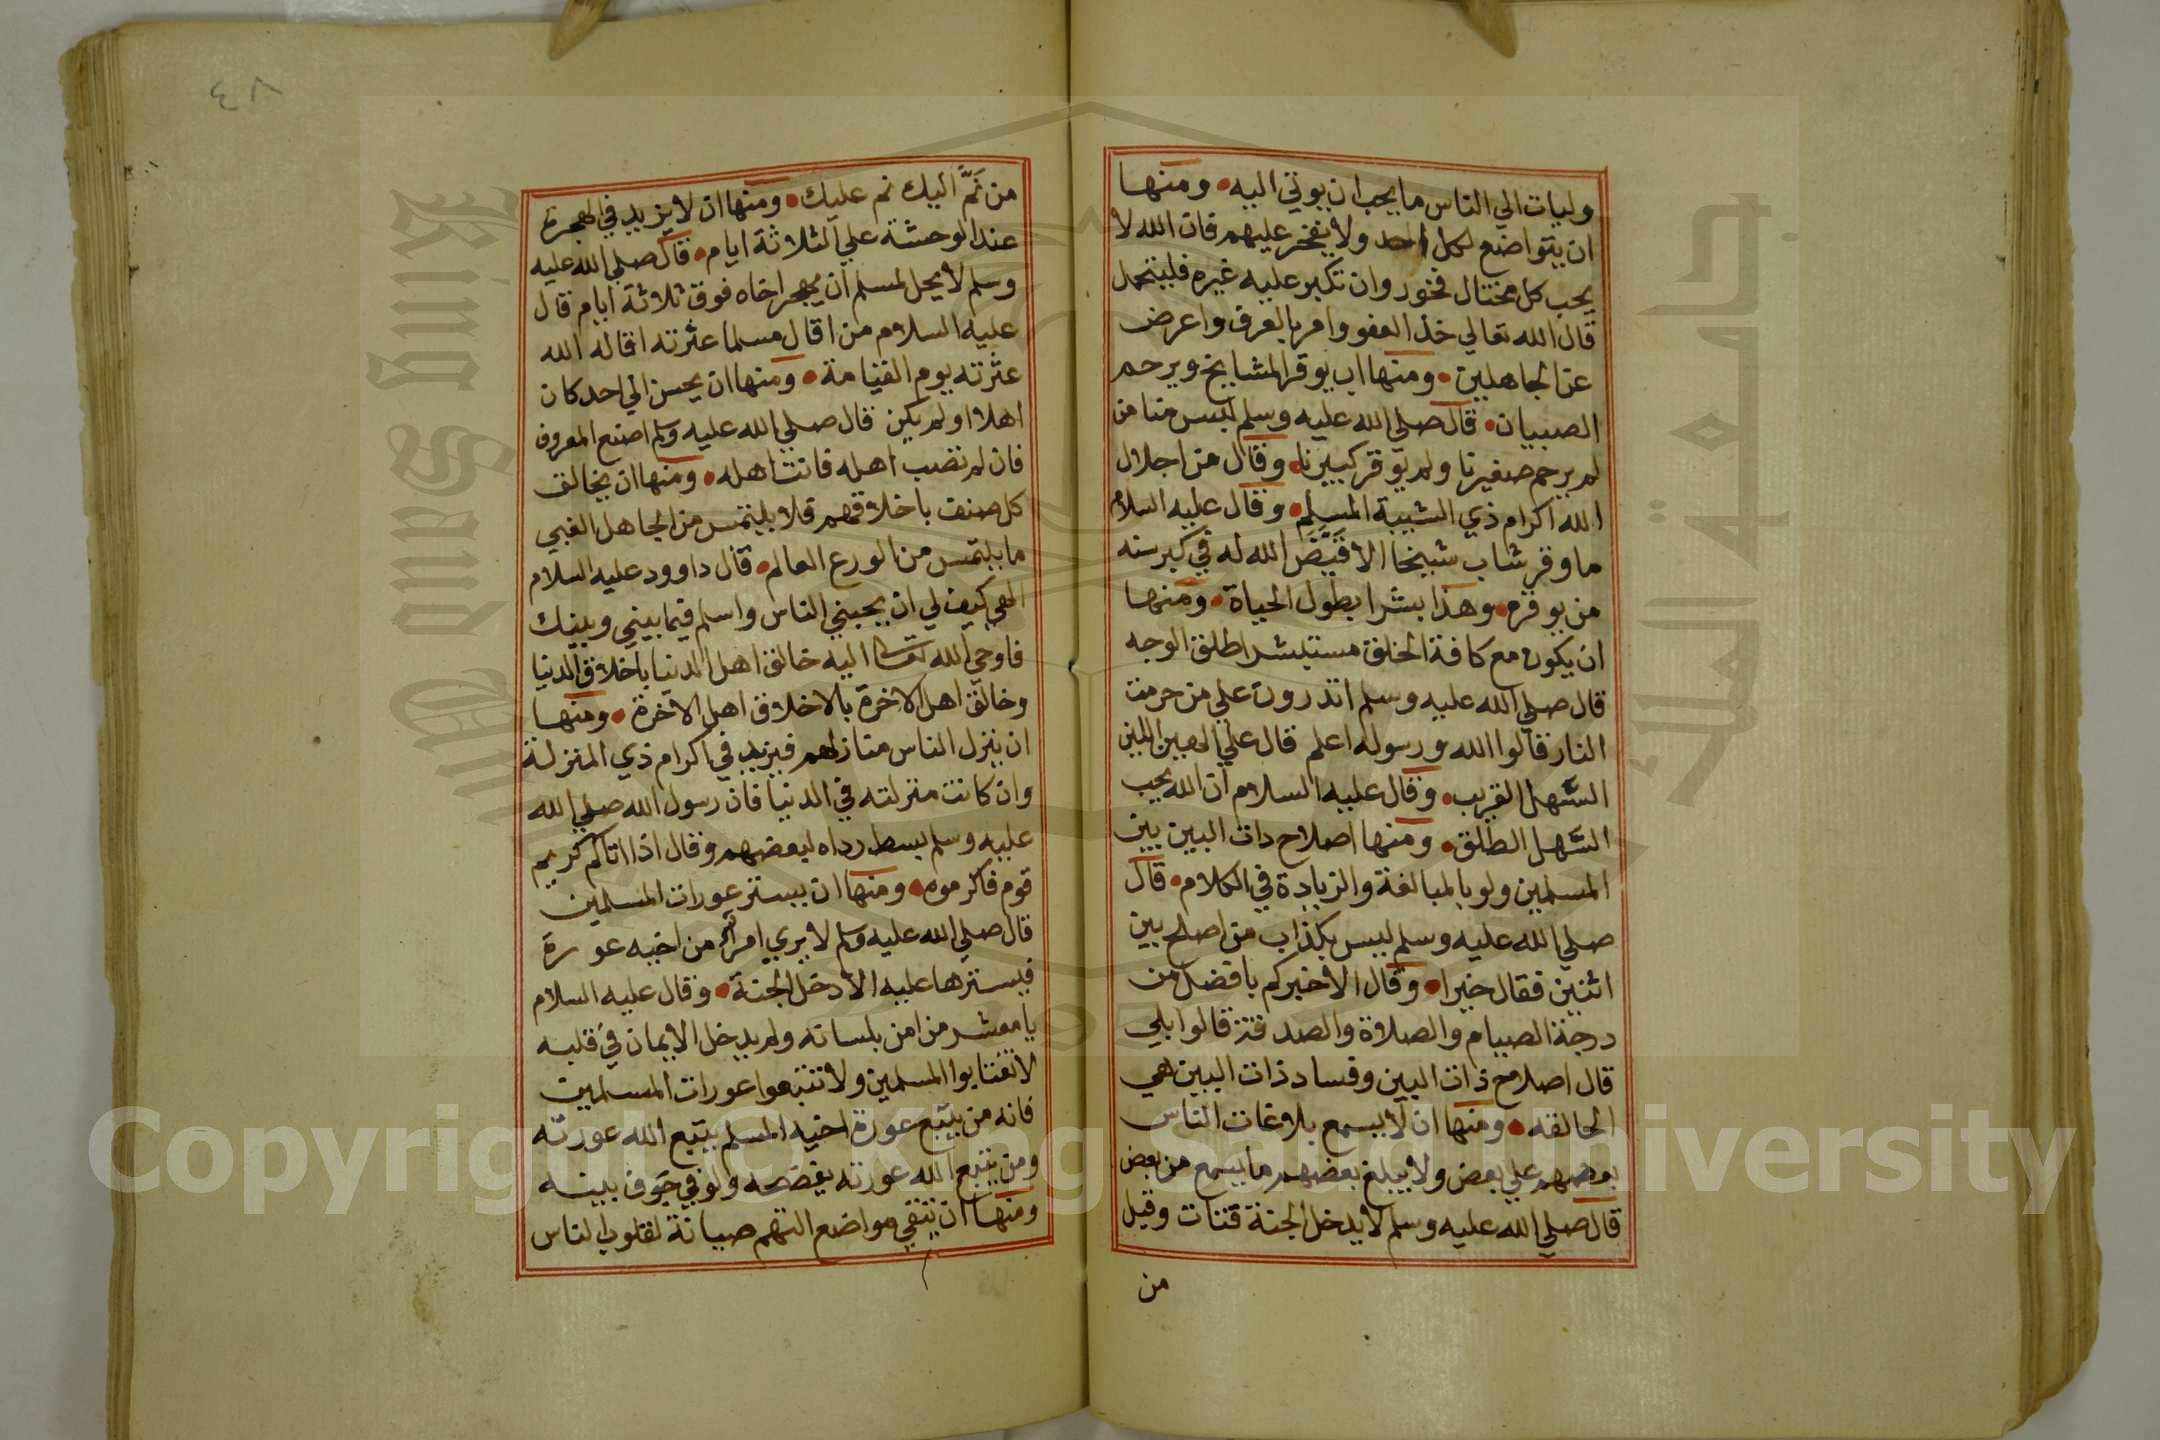 وليات الي الناس ما يجب ان يوتي اليه • ومنها
ان يتواضع لكل احد ولا يفخر عليهم فان الله لا
يحب كل مختال فخور وان تكبر عليه غيره فليتحمل
قال الله تعالي خذ العفو وامر بالعرف واعرض
عن الجاهلين • ومنها ان يوقر المشايخ ويرحم
الصبيان • قال صلي الله عليه وسلم ليس منا من
لم يرحم صغيرنا ولم يوقر كبيرنا • وقال من اجلال
الله اكرام ذي الشيبة المسلم • وقال عليه السلام
ما وقر شاب شيخا الا قَيَّضَ الله له في كبر سنه
من يوقره • وهذا بشرا بطول الحياة • ومنها
ان يكون مع كافة الخلق مستبشرا طلق الوجه
قال صلي الله عليه وسلم اتدرون علي من حرمت
النار قالوا الله ورسوله اعلم قال علي الهين اللين
السَّهل القريب • وقال عليه السلام ان الله يحب
السَّهل الطلق • ومنها اصلاح ذات البين بين
المسلمين ولو بالمبالغة والزيادة في الكلام • قال
صلي الله عليه وسلم ليس بكذاب من اصلح بين
اثنين فقال خيرا • وقال الا اخبركم بافضل من
درجة الصيام والصلاة والصدقة قالوا بلي
قال اصلاح ذات البين وفساد ذات البين هي
الحالقه • ومنها ان لا يسمع بلاغات الناس
بعضهم علي بعض ولا يبلغ بعضهم ما يسمع من بعض
قال صلي الله عليه وسلم لا يدخل الجنة قتات وقيل
من
٤٨
من نَمَّ اليك نم عليك • ومنها ان لا يزيد في الهجرة
عند الوحشة علي الثلاثة ايام • قال صلي الله عليه
وسلم لا يحل لمسلم ان يهجر اخاه فوق ثلاثة ايام قال
عليه السلام من اقال مسلما عثرته اقاله الله
عثرته يوم القيامة • ومنها ان يحسن الي احد كان
اهلا او لم يكن قال صلي الله عليه وسلم اصنع المعروف
فان لم تصب اهله فانت اهله • ومنها ان يخالق
كل صنف باخلاقهم فلا يلتمس من الجاهل الغبي
ما يلتمس من الورع العالم • قال داوود عليه السلام
الهي كيف لي ان يحبني الناس واسلم فيما بيني وبينك
فاوحي الله تعالي اليه خالق اهل الدنيا باخلاق الدنيا
وخالق اهل الاخرة بالاخلاق اهل الاخرة • ومنها
ان ينزل الناس منازلهم فيزيد في اكرام ذي المنزلة
وان كانت منزلته في الدنيا فان رسول الله صلي الله
عليه وسلم بسط رداه لبعضهم وقال اذا اتاكم كريم
قوم فاكرموه • ومنها ان يستر عورات المسلمين
قال صلي الله عليه وسلم لا يري امرأ من اخيه عورة
فيسترها عليه الا دخل الجنة • وقال عليه السلام
يا معشر من امن بلسانه ولم يدخل الايمان في قلبه
لا تغتابوا المسلمين ولا تتبعوا عورات المسلمين
فانه من يتبع عورة اخيه المسلم يتبع الله عورته
ومن يتبع الله عورته يفضحه ولو في جوف بيته
ومنها ان يتقي مواضع التهم صيانة لقلوب الناس
جامعة الملك سعود
King Saud University
Copyright © King Saud University